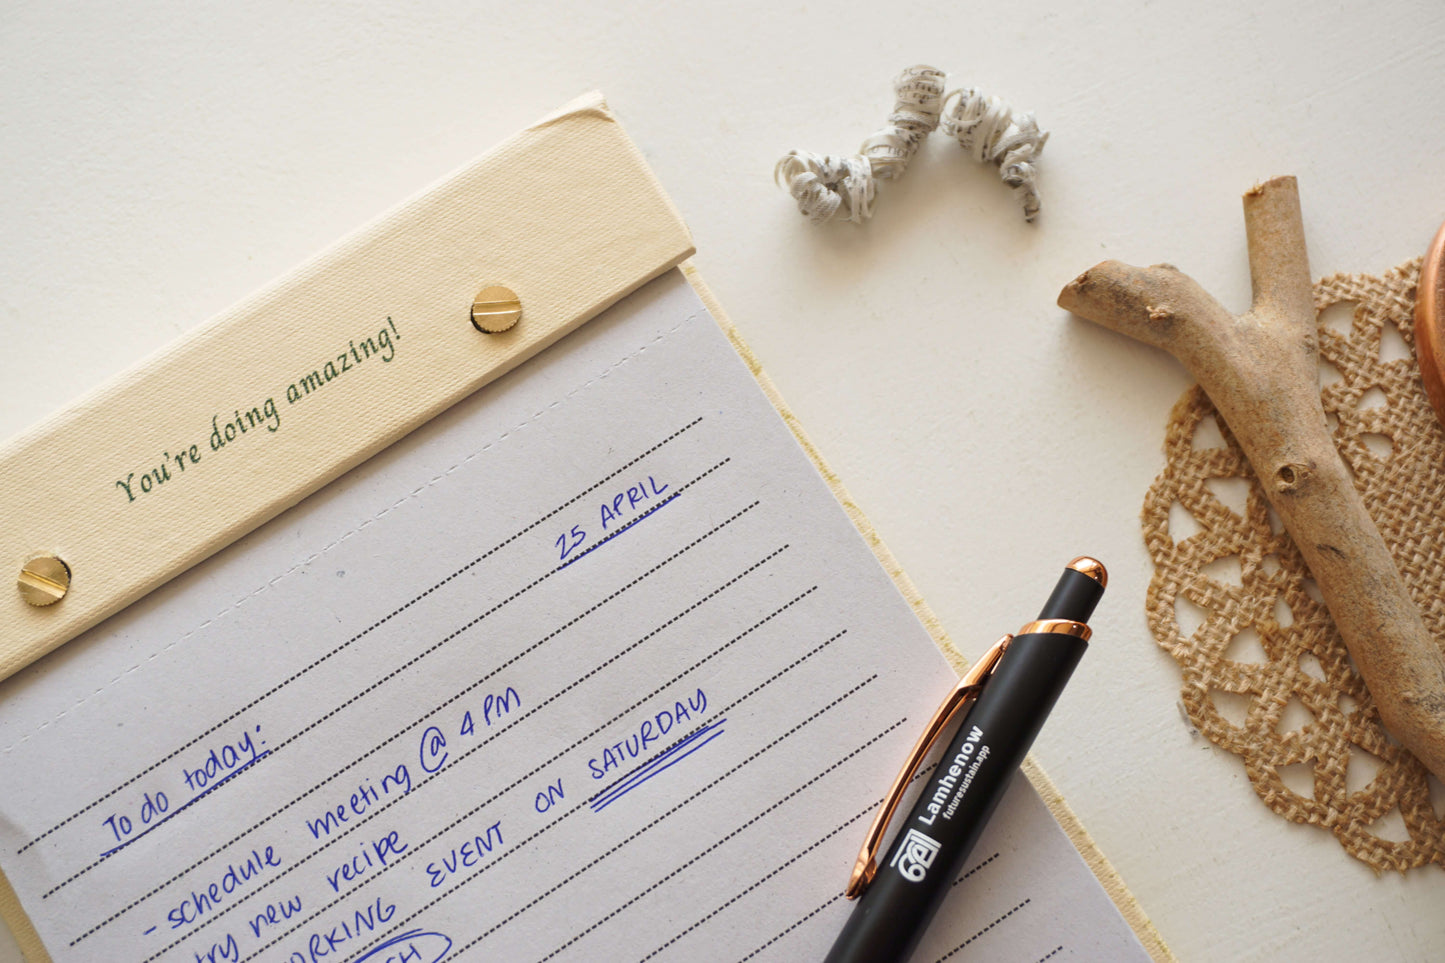 You're doing amazing!
25 APRIL
To do today:
- schedule meeting @ 4 PM
try new recipe
EVENT ON SATURDAY
Lamhenow
futuresustain.app